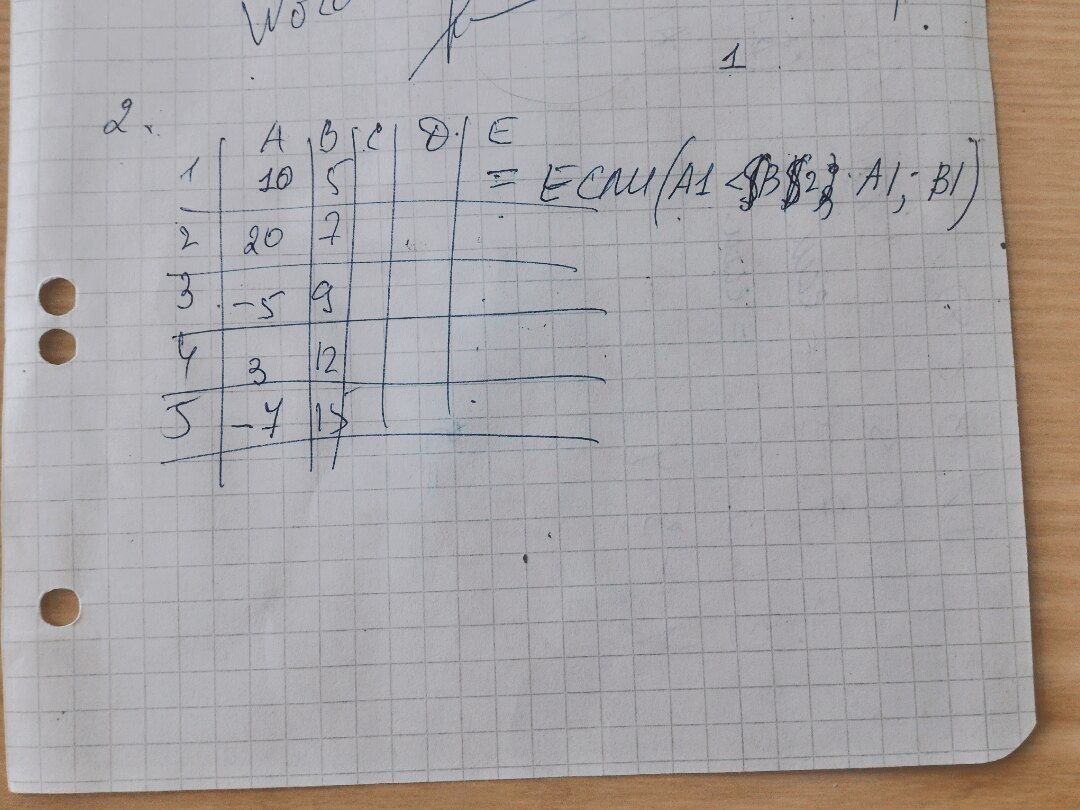 1
2.
A B C D E
1 10 5 = ЕСЛИ(A1 <$B$2; A1; B1)
2 20 7
3 -5 9
4 3 12
5 -7 15